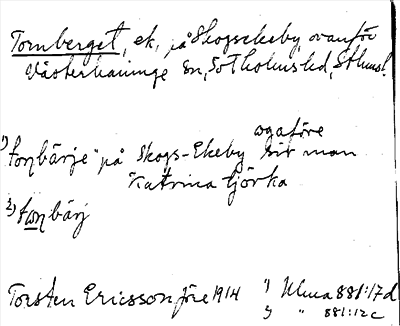 Tornberget, ek, på Skogsekeby, ovanför
Västerhaninge sn, Sotholms hd, Sthmsl.
ogaföre
1) tonbärje på Skogs-Ekeby sir man
Katrina tjörka
2) tonbärj
Torsten Ericsson före 1914 1) Ulma 881:17d
2) " 881:12c